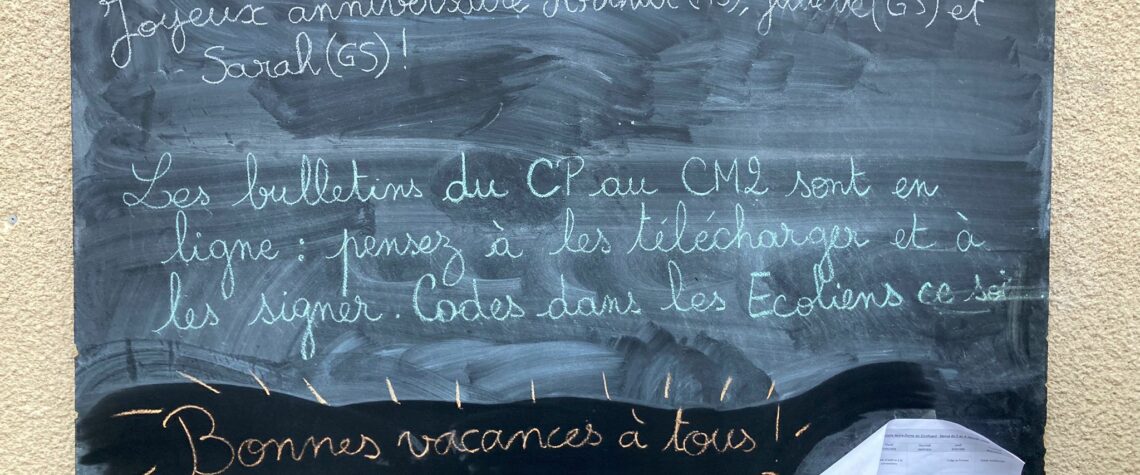 Joyeux anniversaire (GS) et
Sarah (GS) !
Les bulletins du CP au CM2 sont en
ligne : pensez à les télécharger et à
les signer. Codes dans les Ecoliens ce soir
Bonnes vacances à tous !